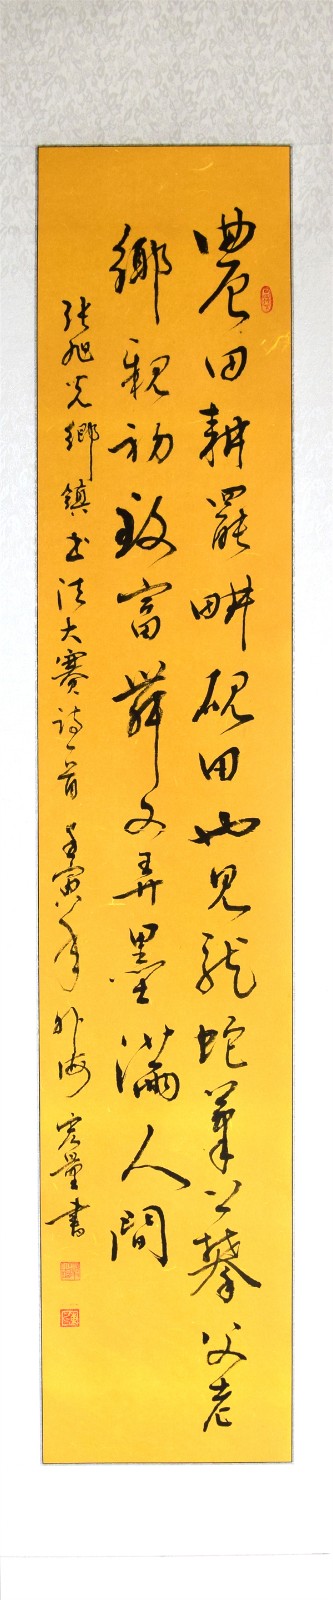 農田耕罷畊硯田也見龍蛇筆上攀父老
鄉親初致富舞文弄墨滿人間
張旭光鄉鎮书法大賽詩一首 壬寅年 外海 宏量書